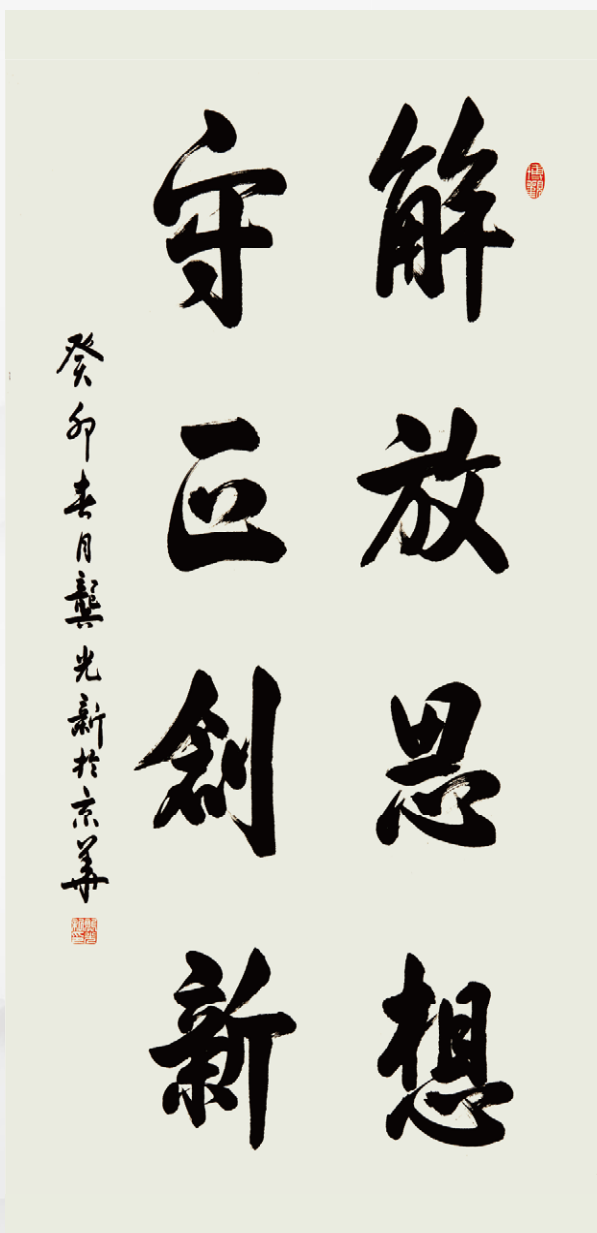 解放思想
守正創新
癸卯春月龔光新於京華